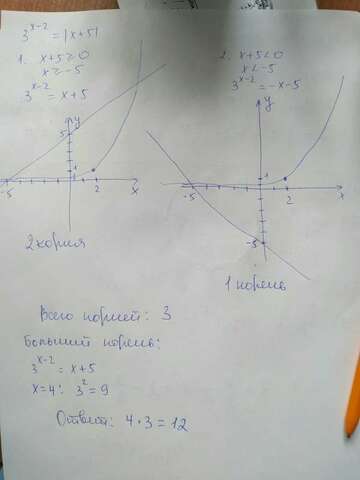 3^(x-2) = |x+5|
1. x+5≥0
x≥-5
3^(x-2) = x+5
2. x+5<0
x<-5
3^(x-2) = -x-5
y
5
1
-5
2
x
2 корня
y
1
-5
2
x
-5
1 корень
Всего корней: 3
Больший корень:
3^(x-2) = x+5
x=4: 3^2 = 9
Ответ: 4·3=12